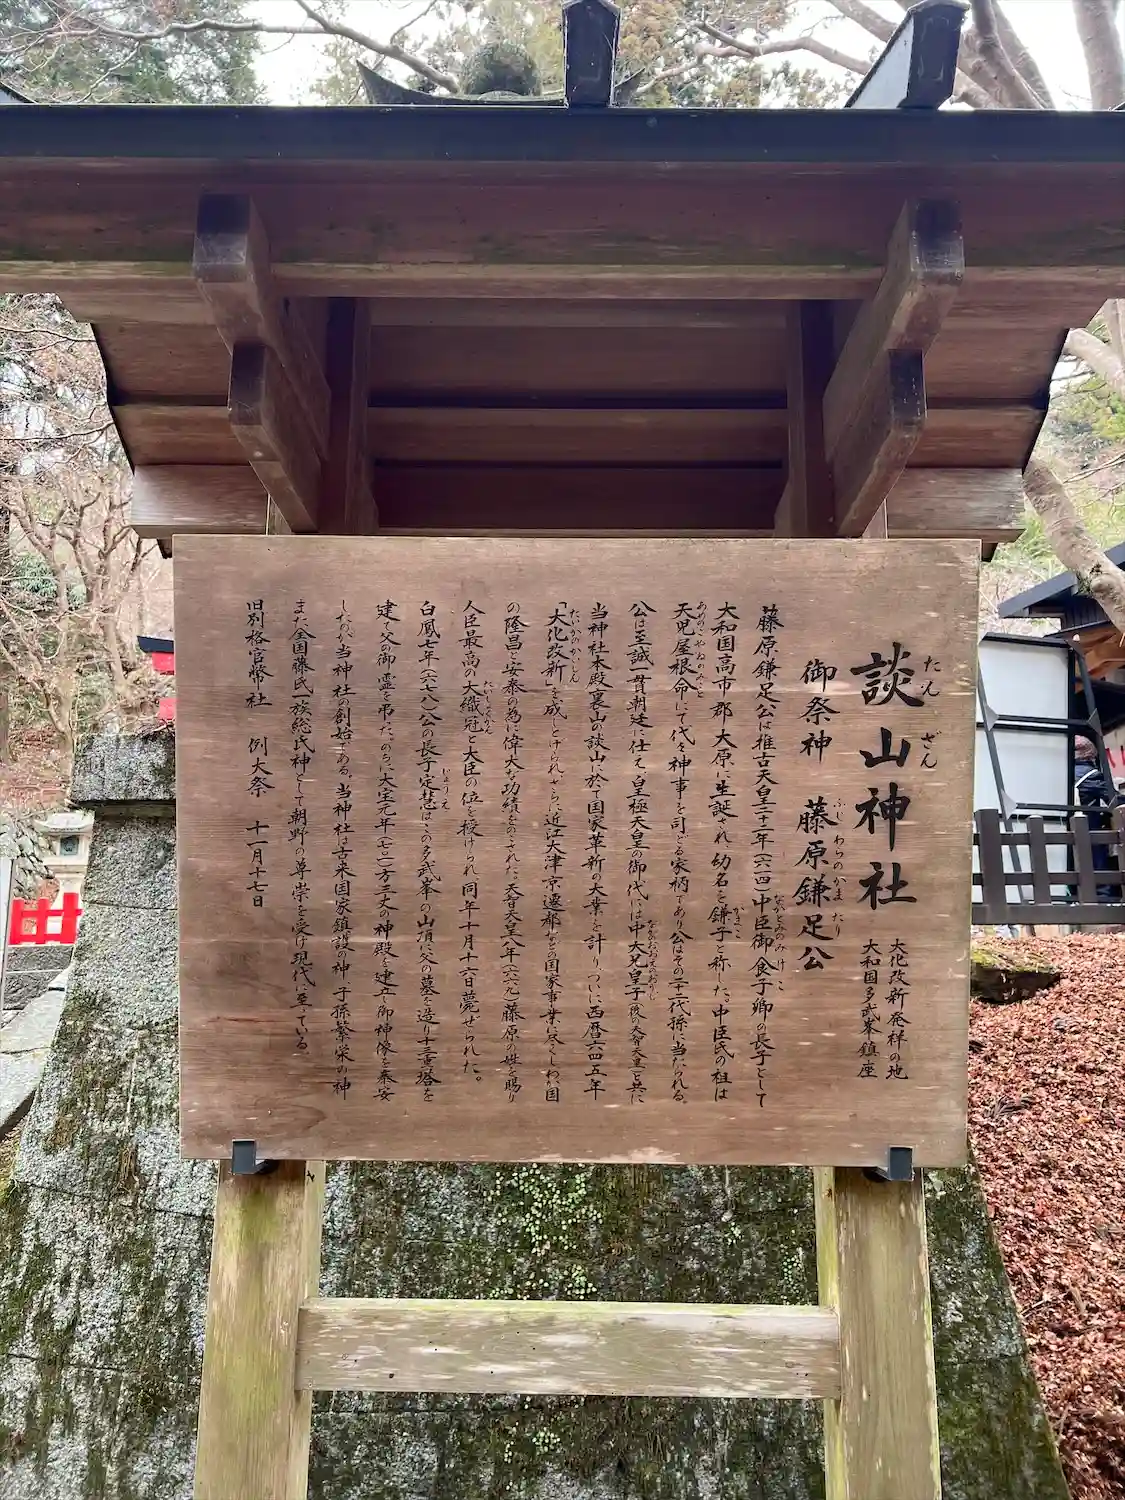 談山神社
たんざん
大化改新発祥の地
大和国多武峯鎮座
御祭神 藤原鎌足公
ふじわらのかまたり
藤原鎌足公は推古天皇二十二年(六一四)中臣御食子卿の長子として
なかとみのみけこ
大和国高市郡大原に生誕され幼名を鎌子と称した。中臣氏の祖は
かまこ
天児屋根命にて代々神事を司どる家柄であり公はその二十二代孫に当たられる。
あめのこやねのみこと
公は至誠一貫朝廷に仕え、皇極天皇の御代には中大兄皇子(後の天智天皇)と共に
なかのおおえのおうじ
当神社本殿裏山の談山に於て国家革新の大業を計りついに西暦六四五年
「大化改新」を成しとげられ、さらに近江大津京遷都などの国家事業に尽くしわが国
たいかのかいしん
の隆昌と安泰の為に偉大な功績をのこされた。天智天皇八年(六六九)藤原の姓を賜り
人臣最高の大織冠と大臣の位を授けられ、同年十月十六日薨ぜられた。
たいしょくかん
白鳳七年(六七八)公の長子定慧はこの多武峯の山頂に父の墓を造り十三重塔を
じょうえ
建て父の御霊を弔った。のちに大宝元年(七〇一)方三丈の神殿を建立し御神像を奉安
したのが当神社の創始である。当神社は古来国家鎮護の神、子孫繁栄の神
また全国藤氏一族総氏神として朝野の尊崇を受け現代に至っている
旧別格官幣社 例大祭 十一月十七日